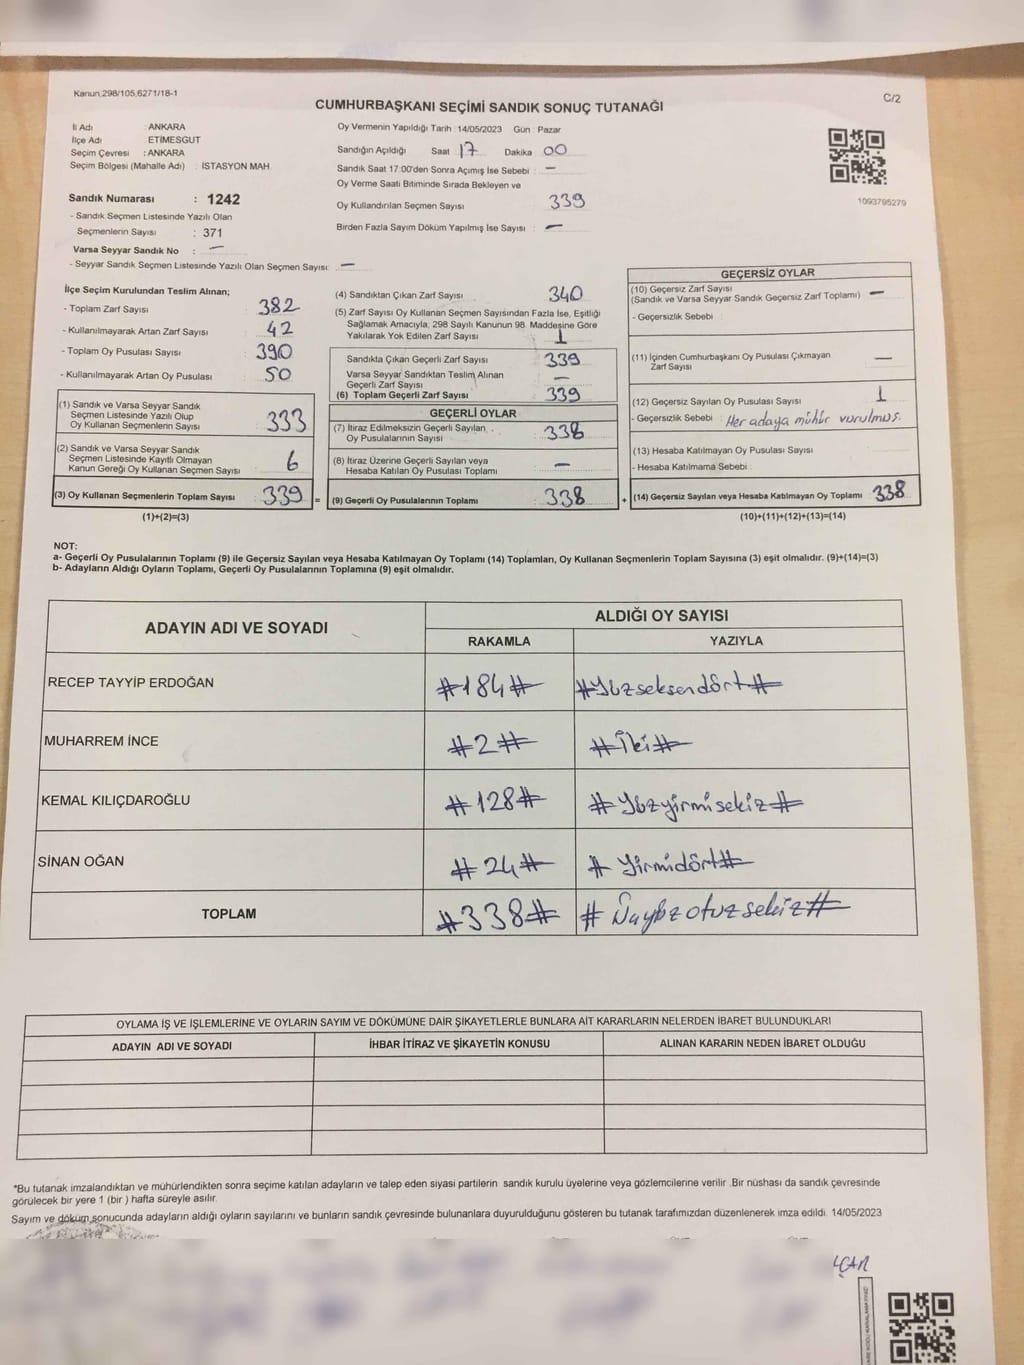 Kanun 298/105,6271/18-1
C/2
CUMHURBAŞKANI SEÇİMİ SANDIK SONUÇ TUTANAĞI
İl Adı : ANKARA
İlçe Adı ETİMESGUT
Seçim Çevresi : ANKARA
Seçim Bölgesi (Mahalle Adı) : İSTASYON MAH.
Sandık Numarası : 1242
- Sandık Seçmen Listesinde Yazılı Olan
Seçmenlerin Sayısı : 371
Varsa Seyyar Sandık No : —
- Seyyar Sandık Seçmen Listesinde Yazılı Olan Seçmen Sayısı: —
Oy Vermenin Yapıldığı Tarih :14/05/2023 Gün : Pazar
Sandığın Açıldığı Saat 17 Dakika 00
Sandık Saat 17:00'den Sonra Açımış İse Sebebi : —
Oy Verme Saati Bitiminde Sırada Bekleyen ve
Oy Kullandırılan Seçmen Sayısı 339
Birden Fazla Sayım Döküm Yapılmış İse Sayısı : —
1093795279
İlçe Seçim Kurulundan Teslim Alınan;
- Toplam Zarf Sayısı 382
- Kullanılmayarak Artan Zarf Sayısı 42
- Toplam Oy Pusulası Sayısı 390
- Kullanılmayarak Artan Oy Pusulası 50
(1) Sandık ve Varsa Seyyar Sandık
Seçmen Listesinde Yazılı Olup
Oy Kullanan Seçmenlerin Sayısı 333
(2) Sandık ve Varsa Seyyar Sandık
Seçmen Listesinde Kayıtlı Olmayan
Kanun Gereği Oy Kullanan Seçmen Sayısı 6
(3) Oy Kullanan Seçmenlerin Toplam Sayısı 339 =
(1)+(2)=(3)
(4) Sandıktan Çıkan Zarf Sayısı 340
(5) Zarf Sayısı Oy Kullanan Seçmen Sayısından Fazla İse, Eşitliği
Sağlamak Amacıyla, 298 Sayılı Kanunun 98. Maddesine Göre
Yakılarak Yok Edilen Zarf Sayısı 1
Sandıkta Çıkan Geçerli Zarf Sayısı 339
Varsa Seyyar Sandıktan Teslim Alınan
Geçerli Zarf Sayısı —
(6) Toplam Geçerli Zarf Sayısı 339
GEÇERLİ OYLAR
(7) İtiraz Edilmeksizin Geçerli Sayılan
Oy Pusulalarının Sayısı 338
(8) İtiraz Üzerine Geçerli Sayılan veya
Hesaba Katılan Oy Pusulası Toplamı —
(9) Geçerli Oy Pusulalarının Toplamı 338 +
GEÇERSİZ OYLAR
(10) Geçersiz Zarf Sayısı
(Sandık ve Varsa Seyyar Sandık Geçersiz Zarf Toplamı) —
- Geçersizlik Sebebi :
(11) İçinden Cumhurbaşkanı Oy Pusulası Çıkmayan
Zarf Sayısı —
(12) Geçersiz Sayılan Oy Pusulası Sayısı 1
- Geçersizlik Sebebi : Her adaya mühür vurulmuş.
(13) Hesaba Katılmayan Oy Pusulası Sayısı
- Hesaba Katılmama Sebebi :
(14) Geçersiz Sayılan veya Hesaba Katılmayan Oy Toplamı 338
(10)+(11)+(12)+(13)=(14)
NOT:
a- Geçerli Oy Pusulalarının Toplamı (9) ile Geçersiz Sayılan veya Hesaba Katılmayan Oy Toplamı (14) Toplamları, Oy Kullanan Seçmenlerin Toplam Sayısına (3) eşit olmalıdır. (9)+(14)=(3)
b- Adayların Aldığı Oyların Toplamı, Geçerli Oy Pusulalarının Toplamına (9) eşit olmalıdır.
ADAYIN ADI VE SOYADI
ALDIĞI OY SAYISI
RAKAMLA YAZIYLA
RECEP TAYYİP ERDOĞAN #184# #Yüzseksendört#
MUHARREM İNCE #2# #İki#
KEMAL KILIÇDAROĞLU #128# #Yüzyirmisekiz#
SİNAN OĞAN #24# # Yirmidört#
TOPLAM #338# # Üçyüzotuzsekiz#
OYLAMA İŞ VE İŞLEMLERİNE VE OYLARIN SAYIM VE DÖKÜMÜNE DAİR ŞİKAYETLERLE BUNLARA AİT KARARLARIN NELERDEN İBARET BULUNDUKLARI
ADAYIN ADI VE SOYADI İHBAR İTİRAZ VE ŞİKAYETİN KONUSU ALINAN KARARIN NEDEN İBARET OLDUĞU
*Bu tutanak imzalandıktan ve mühürlendikten sonra seçime katılan adayların ve talep eden siyasi partilerin sandık kurulu üyelerine veya gözlemcilerine verilir .Bir nüshası da sandık çevresinde
görülecek bir yere 1 (bir ) hafta süreyle asılır.
Sayım ve döküm sonucunda adayların aldığı oyların sayılarını ve bunların sandık çevresinde bulunanlara duyurulduğunu gösteren bu tutanak tarafımızdan düzenlenerek imza edildi. 14/05/2023